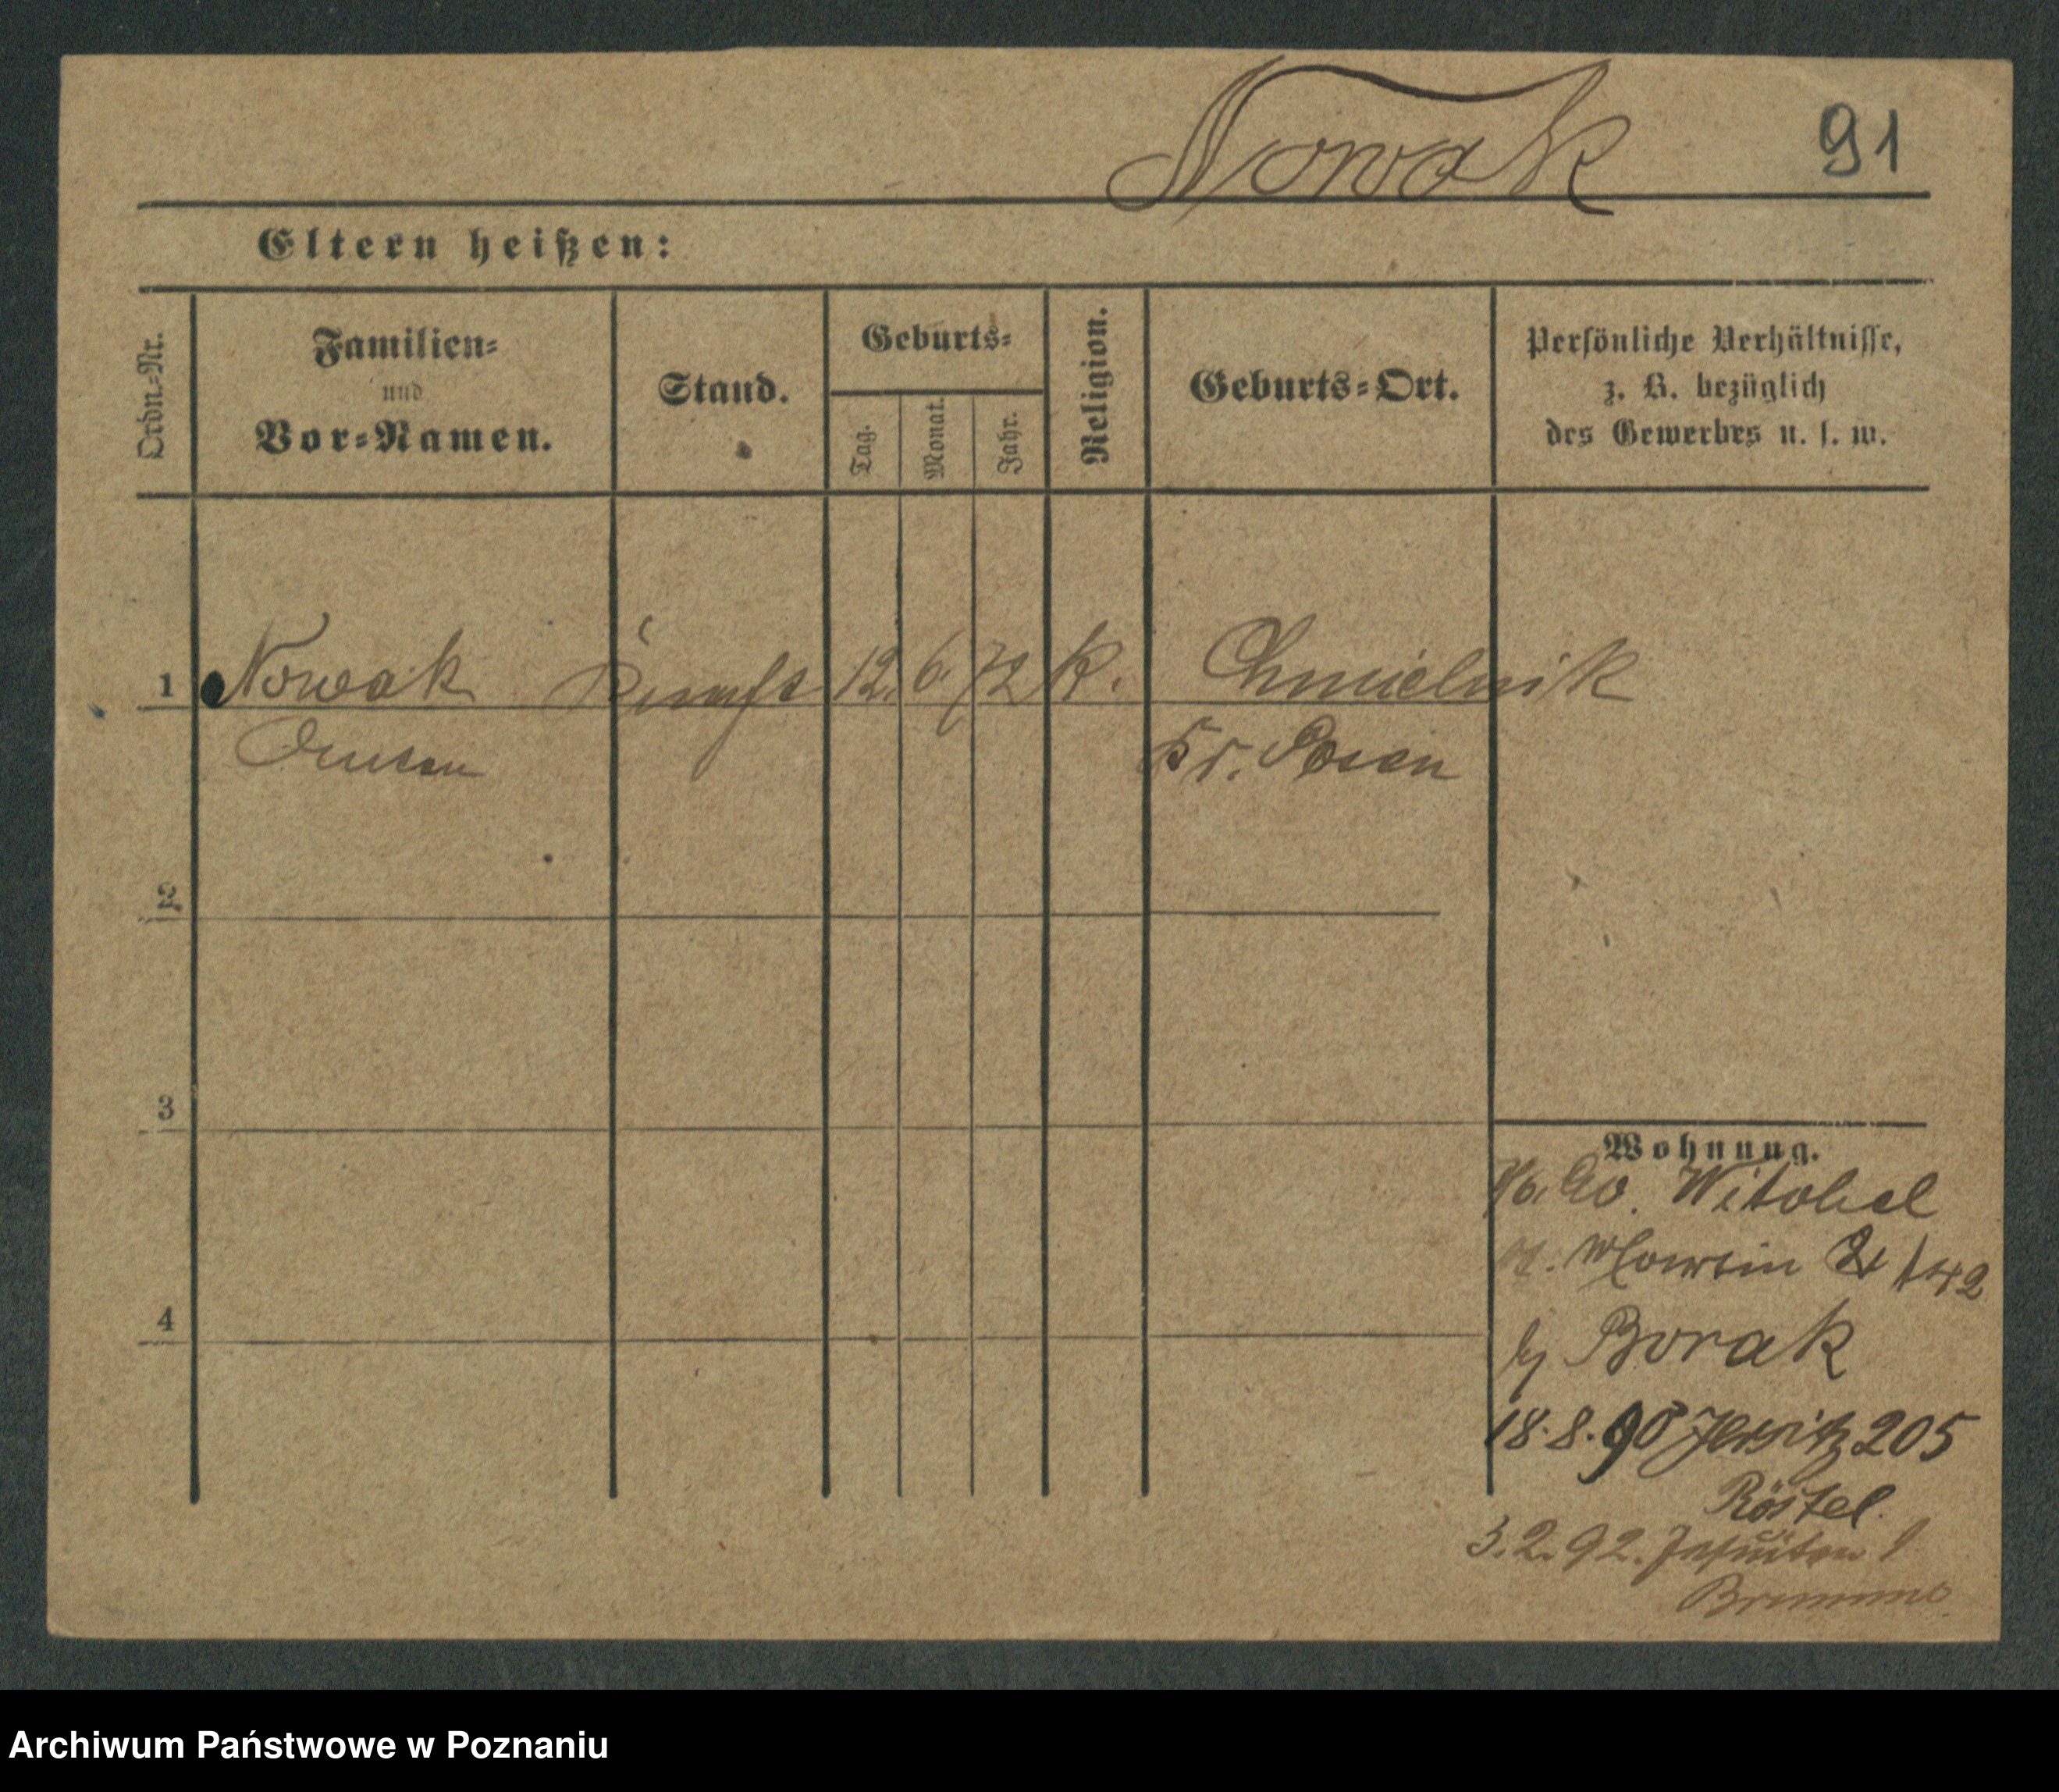 Nowak 91
Eltern heißen:
Ordn.-Nr.
Familien-
und
Vor-Namen.
Stand.
Geburts-
Tag.
Monat.
Jahr.
Religion.
Geburts-Ort.
Persönliche Verhältnisse,
z. B. bezüglich
des Gewerbes u. s. w.
1 Nowak 12. 6. 72 K. Chmielnik
Kr. Posen
2
3
4
Wohnung.
Witobel
Martin 42
Borak
18.8.90 Jersitz 205
Röstel.
3.2.92. Jesuiten
Archiwum Państwowe w Poznaniu